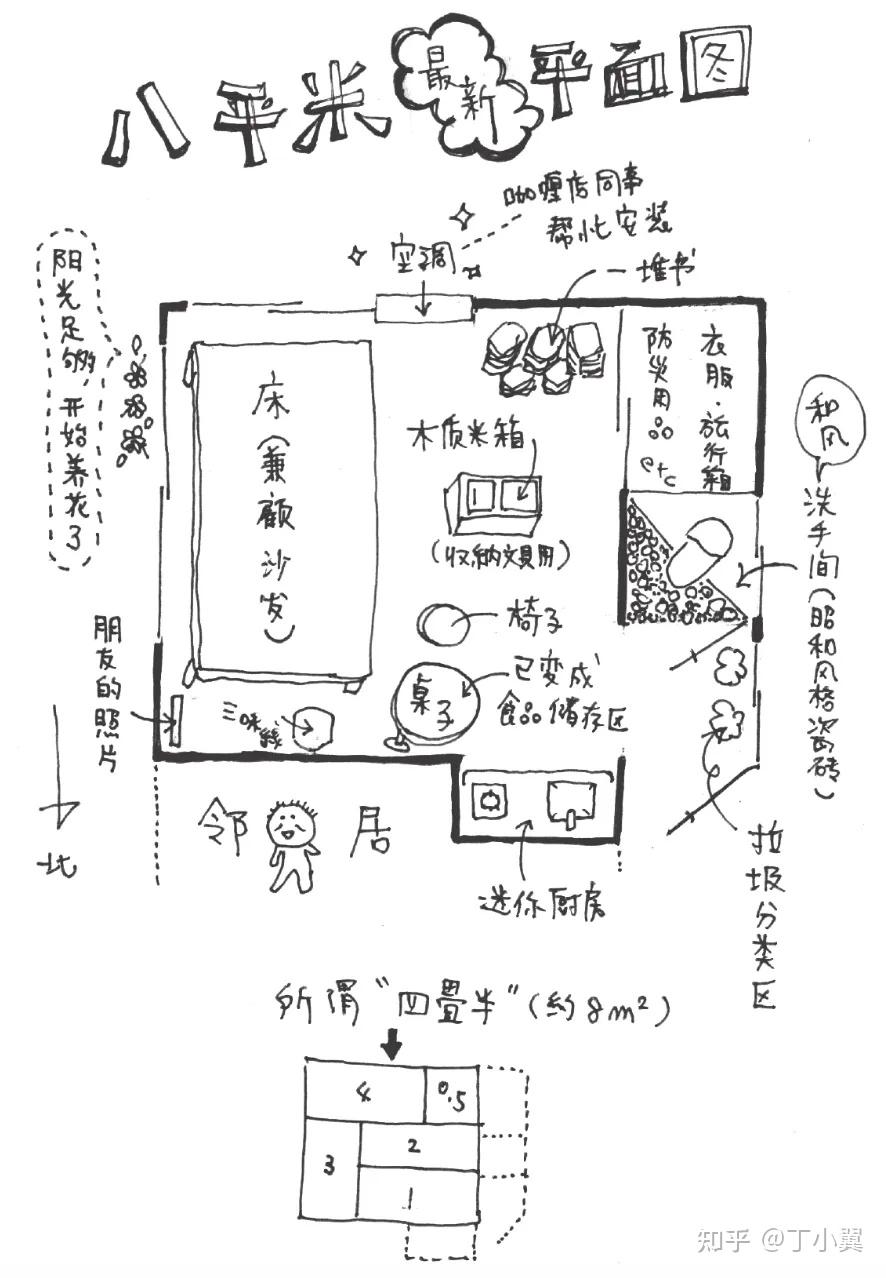 八平米最新平面图
咖喱店同事
帮忙安装
空调
一堆书
阳光足够,开始养花了
床(兼顾沙发)
木质米箱
(收纳文具用)
衣服·旅行箱
防灾用品
etc
和风
洗手间(昭和风格瓷砖)
椅子
已变成
食品储存区
桌子
三味线
朋友的照片
北
邻居
迷你厨房
垃圾分类区
所谓“四畳半”(約8m²)
4
0.5
3
2
1
知乎 @丁小翼